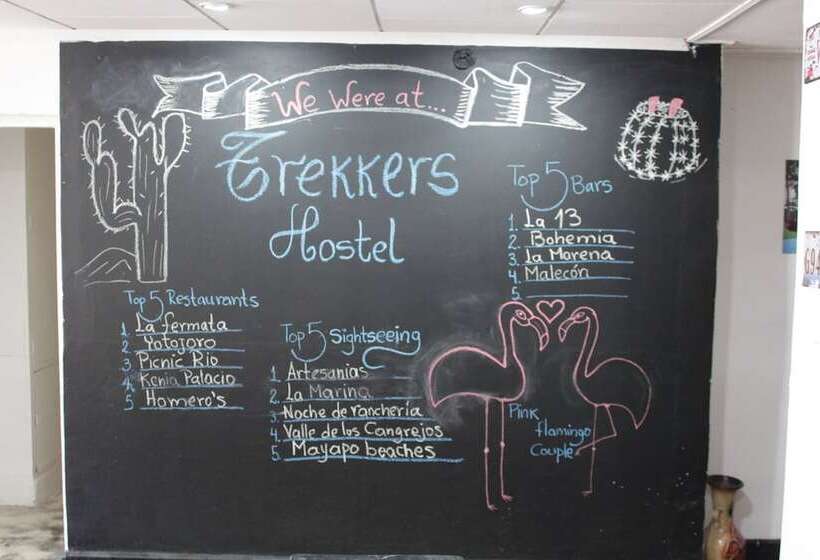 We were at...
Trekkers
Hostel
Top 5 Bars
1. La 13
2. Bohemia
3. La Morena
4. Malecón
5.
Top 5 Restaurants
1. La fermata
2. Yotojoro
3. Picnic Rio
4. Kenia Palacio
5 Homero's
Top 5 Sightseeing
1. Artesanias
2. La Marina
3. Noche de ranchería
4. Valle de los Cangrejos
5. Mayapo beaches
Pink
flamingo
Couple